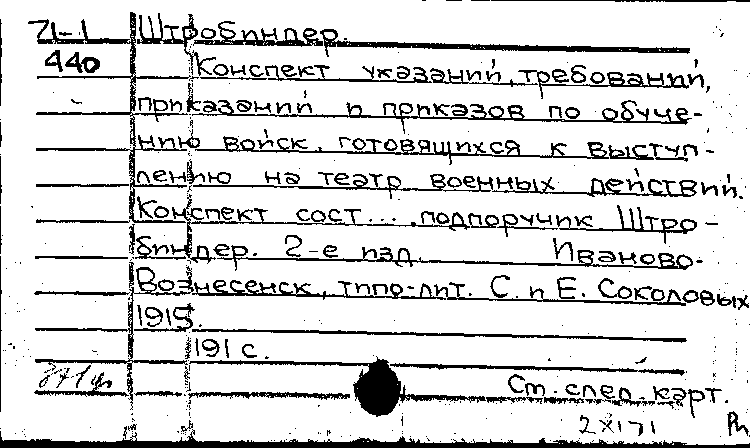 71-1 Штробиндер.
440 Конспект указаний, требований,
приказаний и приказов по обуче-
нию войск, готовящихся к выступ-
лению на театр военных действий.
Конспект сост... подпоручик Штро-
биндер. 2-е изд. Иваново-
Вознесенск, типо-лит. С. и Е. Соколовых
1915.
191 с.
Ст. след. карт.
2 XI 71